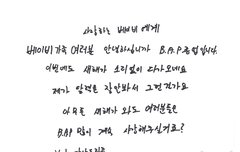 사랑하는 베이비 에게
베이비가족 여러분 안녕하십니까 B.A.P 종업입니다.
이번년도 새해가 소리없이 다가오네요
제가 양력은 잘 안봐서 그런건가요
아무튼 새해가 와도 여러분들은
B.A.P 많이 계속 사랑해주실거죠?